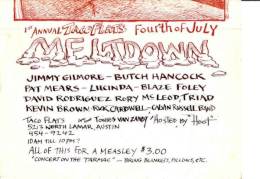 1st ANNUAL TACO FLATS FOURTH OF JULY
MELTDOWN
JIMMY GILMORE - BUTCH HANCOCK
PAT MEARS - LUCINDA - BLAZE FOLEY
DAVID RODRIGUEZ RORY MCLEOD, TRIAD
KEVIN BROWN ROK CARDWELL - CALVIN RUSSELL BAND
TACO FLATS TOWNES VAN ZANDT "HOSTED BY" "HOOT"
5213 NORTH LAMAR, AUSTIN
454-9242
10AM TILL 10PM?
ALL OF THIS FOR A MEASLEY $3.00
"CONCERT ON THE TARMAC" - BRING BLANKETS, PILLOWS, ETC.